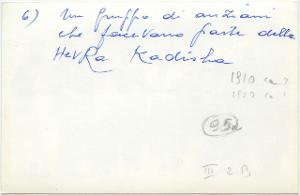 6) Un gruppo di anziani
che facevano parte della
HevRa Kadisha
1910 ca ?
1920 ca !
95a
III 2 B